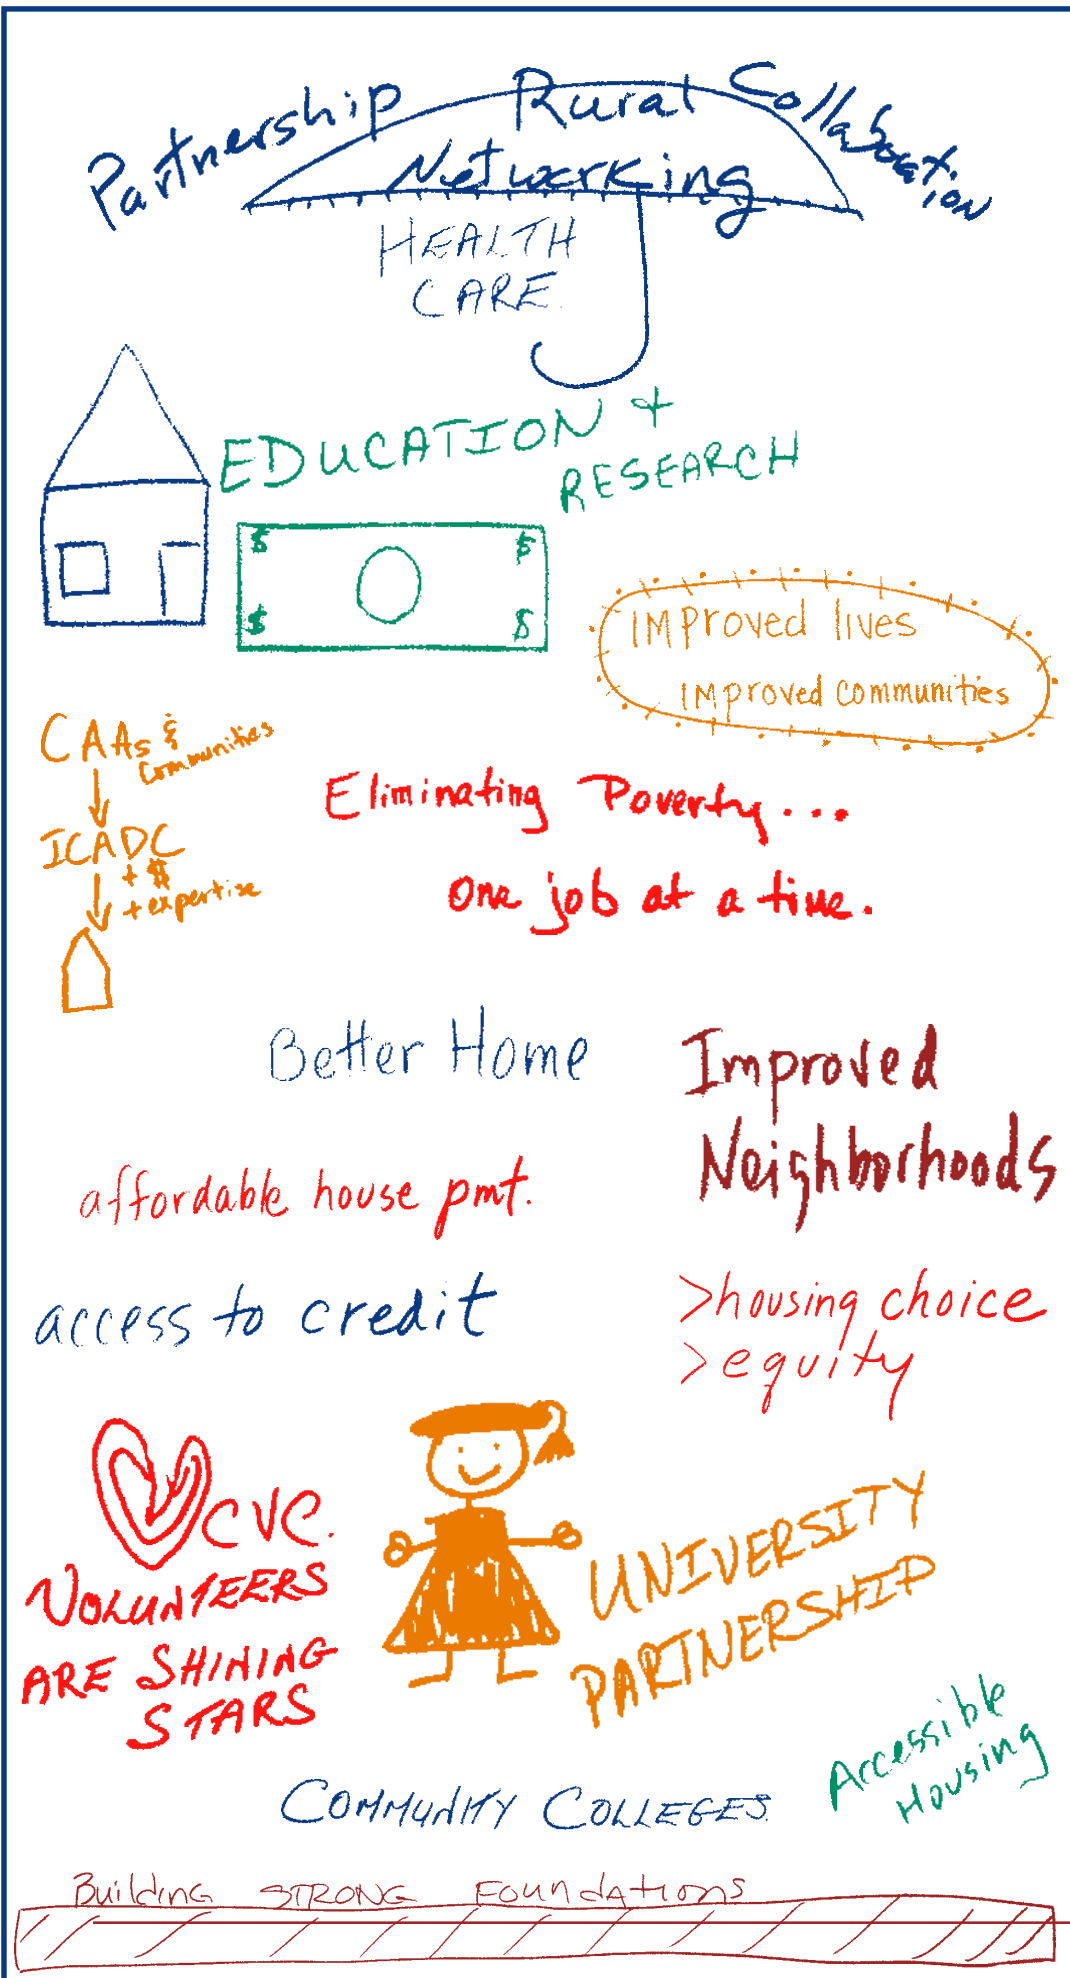 Partnership Rural Collaboration
Networking
HEALTH
CARE
EDUCATION +
RESEARCH
$ $
$ $
IMProved lives
IMProved communities
CAAs &
communities
ICADC
+ $
+ expertise
Eliminating Poverty...
one job at a time.
Better Home
Improved
Neighborhoods
affordable house pmt.
access to credit
>housing choice
>equity
CVC.
VOLUNTEERS
ARE SHINING
STARS
UNIVERSITY
PARTNERSHIP
Accessible
Housing
COMMUNITY COLLEGES.
Building STRONG FoundATions